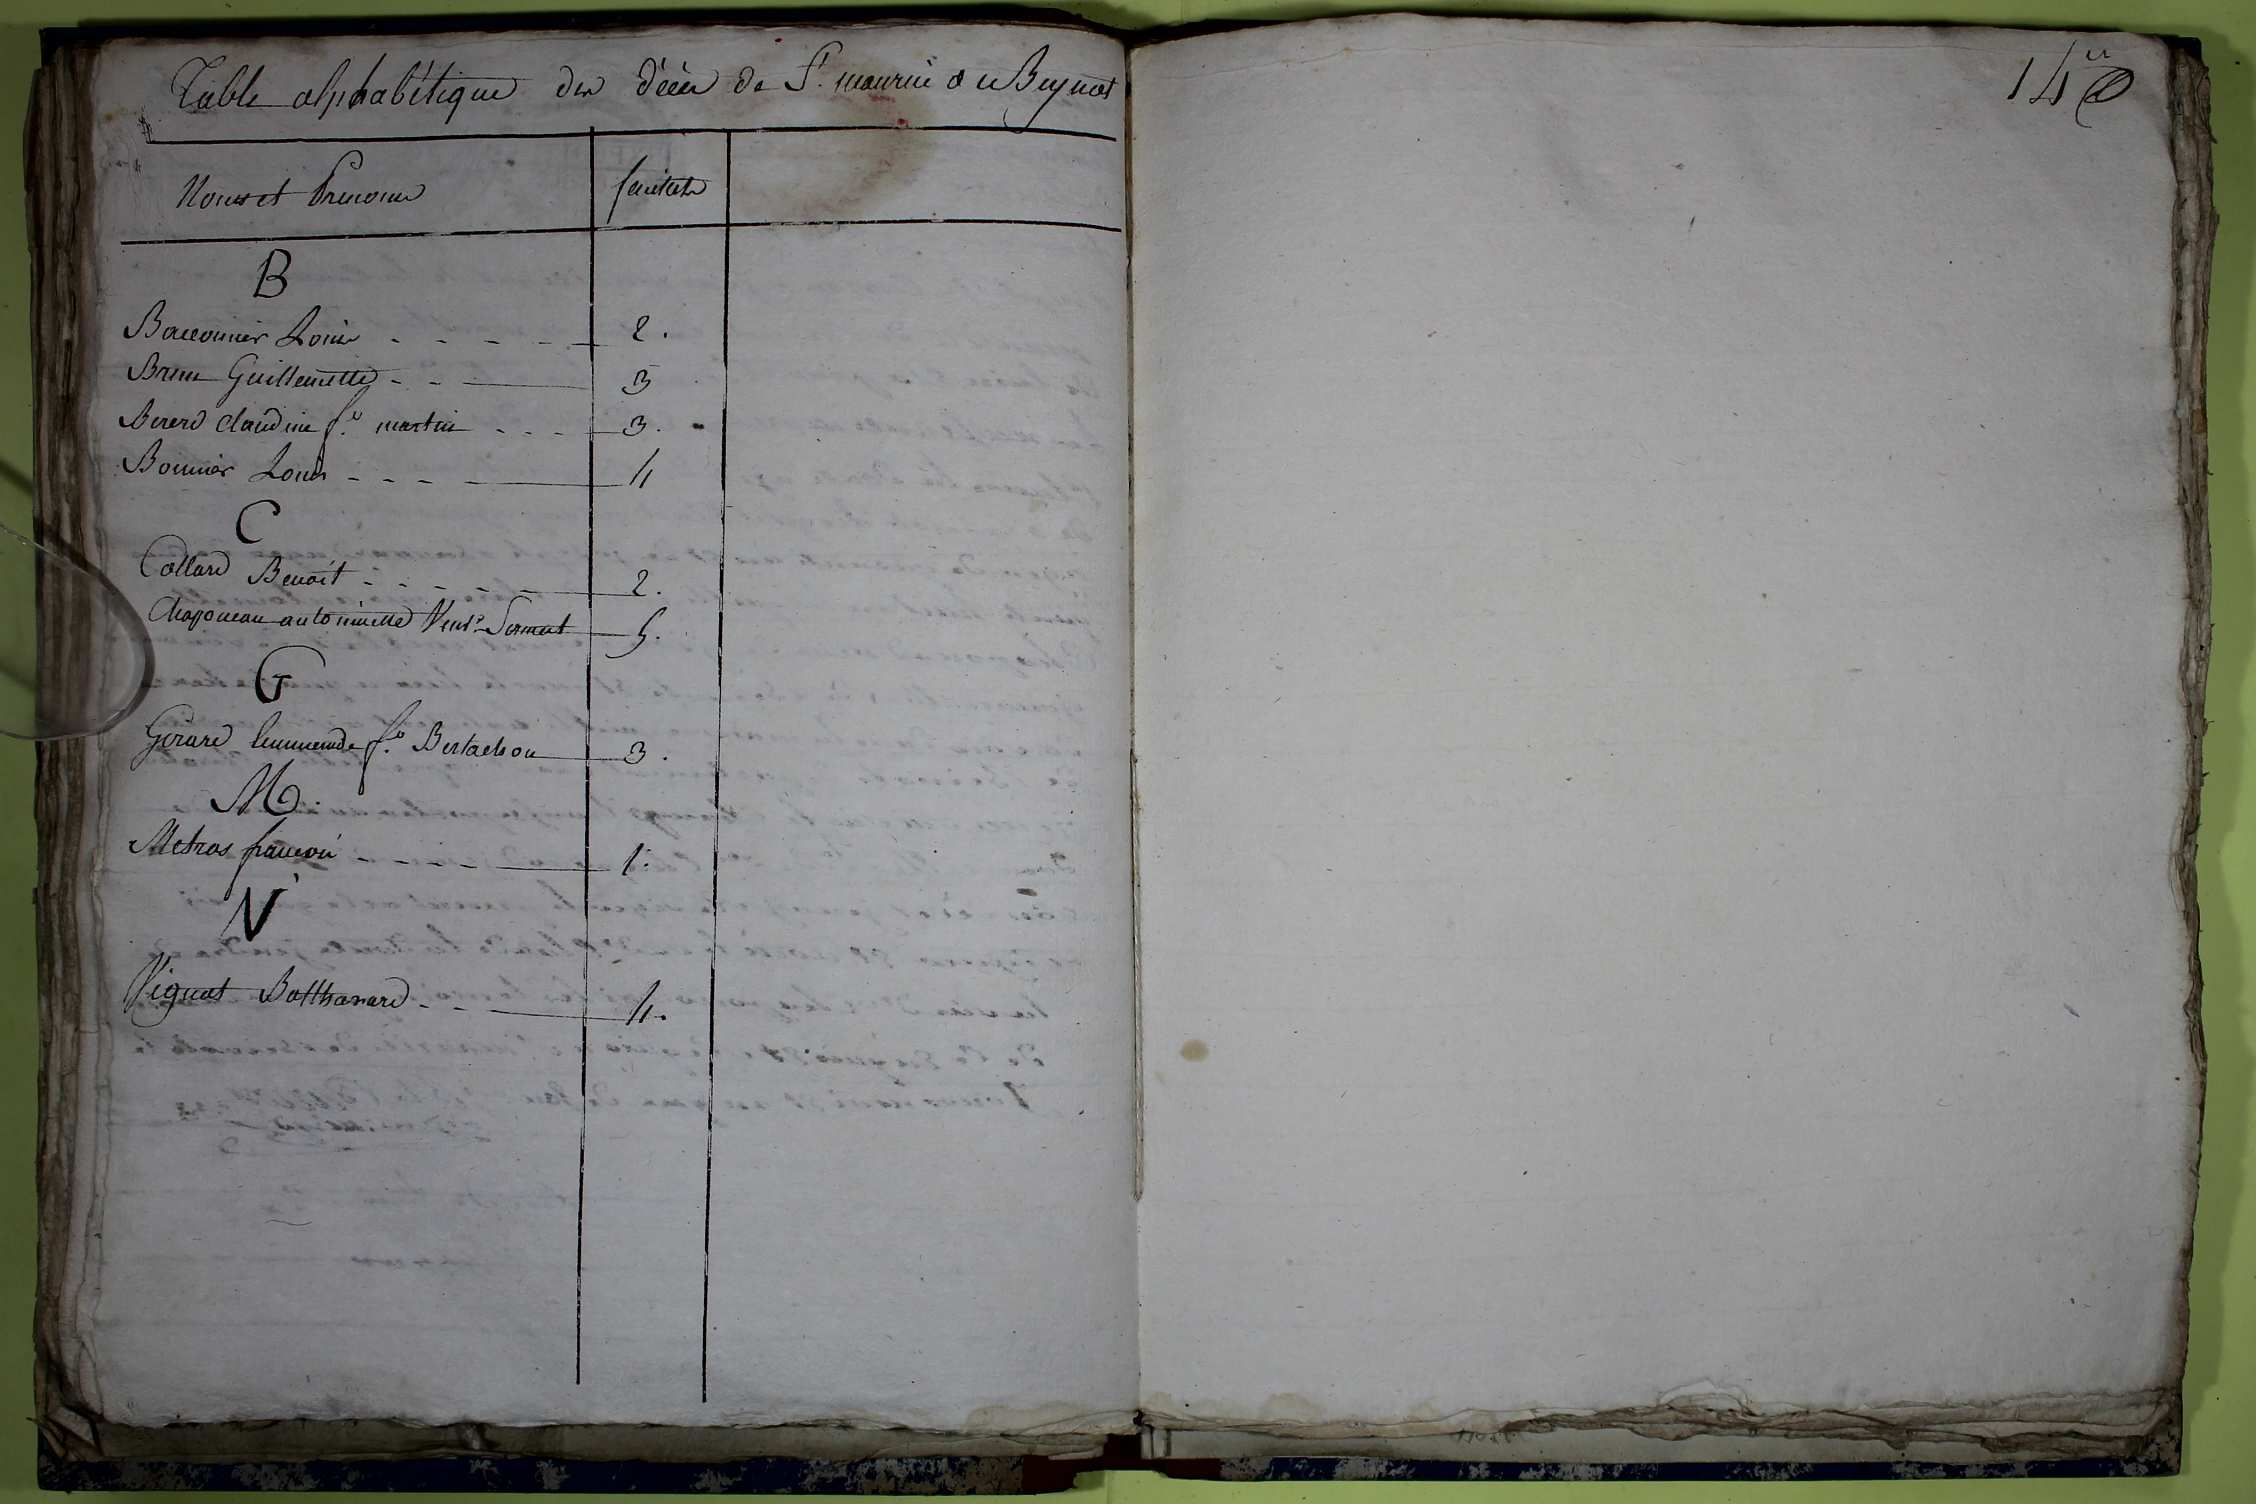 Table alphabétique des décès de St. maurice de Beynost
14
Noms et Prenoms feuillets
B
Bacconnier Louis - - - - - 2.
Brun Guillemette - - - 3
Bererd claudine fe. martin - - - 3.
Bonnier Louis - - - - 4
C
Collard Benoit - - - - - 2.
antoinette Veuve Sermet 5.
G
Girard fe. Bertachon 3.
M.
Metras francois - - - - - 1.
V
Vignat Balthazard - - - 4.